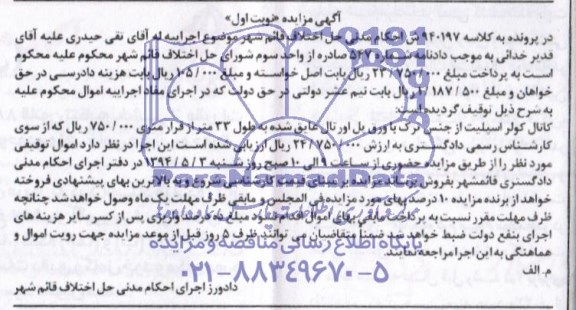 آگهی مزایده «نوبت اول»
در پرونده به کلاسه ۹۴۰۱۹۷ ش احکام مدنی حل اختلاف قائم شهر موضوع اجراییه له آقای تقی حیدری علیه آقای
قدیر خدائی به موجب دادنامه شماره ۵۲۷ صادره از واحد سوم شورای حل اختلاف قائم شهر محکوم علیه محکوم
است به پرداخت مبلغ ۲۳/۷۵۰/۰۰۰ ریال بابت اصل خواسته و مبلغ ۱۰۵/۰۰۰ ریال بابت هزینه دادرسی در حق
خواهان و مبلغ ۱/۱۸۷/۵۰۰ ریال بابت نیم عشر دولتی در حق دولت که در اجرای مفاد اجراییه اموال محکوم علیه
به شرح ذیل توقیف گردیده است:
کانال کولر اسپلیت از جنس ترک با ورق پل اور تال عایق شده به طول ۳۳ متر از قرار متری ۷۵۰/۰۰۰ ریال که از سوی
کارشناس رسمی دادگستری به ارزش ۲۴/۷۵۰/۰۰۰ ریال ارزیابی شده است این اجرا در نظر دارد اموال توقیفی
مورد نظر را از طریق مزایده حضوری از ساعت ۹ الی ۱۰ صبح روز شنبه ۱۳۹۴/۵/۳ در دفتر اجرای احکام مدنی
دادگستری قائمشهر بفروش برساند مزایده بر مبنای قیمت کارشناسی شروع و به بالاترین بهای پیشنهادی فروخته
خواهد از برنده مزایده ۱۰ درصد بهای مورد مزایده فی المجلس و مابقی ظرف مهلت یک ماه وصول خواهد شد چنانچه
ظرف مهلت مقرر نسبت به پرداخت مابقی بهای اموال اقدام نشود مبلغ ده درصد واریزی پس از کسر سایر هزینه های
اجرای بنفع دولت ضبط خواهد شد ضمنا متقاضیان می توانند ظرف ۵ روز قبل از موعد مزایده جهت رویت اموال و
هماهنگی به این اجرا مراجعه نمایند.
م. الف
دادورز اجرای احکام مدنی حل اختلاف قائم شهر
ParsNamadData
پایگاه اطلاع رسانی مناقصه و مزایده
۰۲۱-۸۸۳۴۹۶۷۰-۵